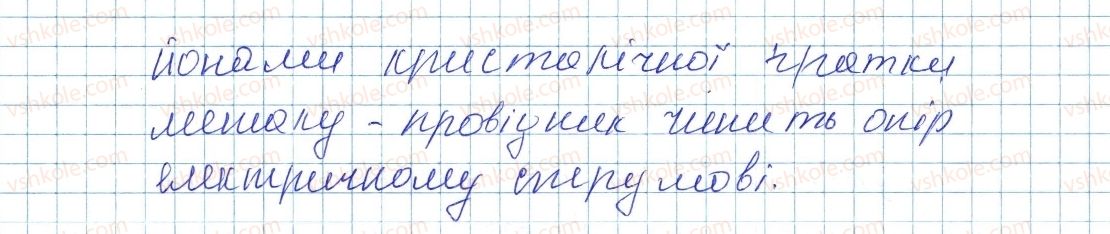 йонами кристалічної гратки
металу - провідник чинить опір
електричному струмові.